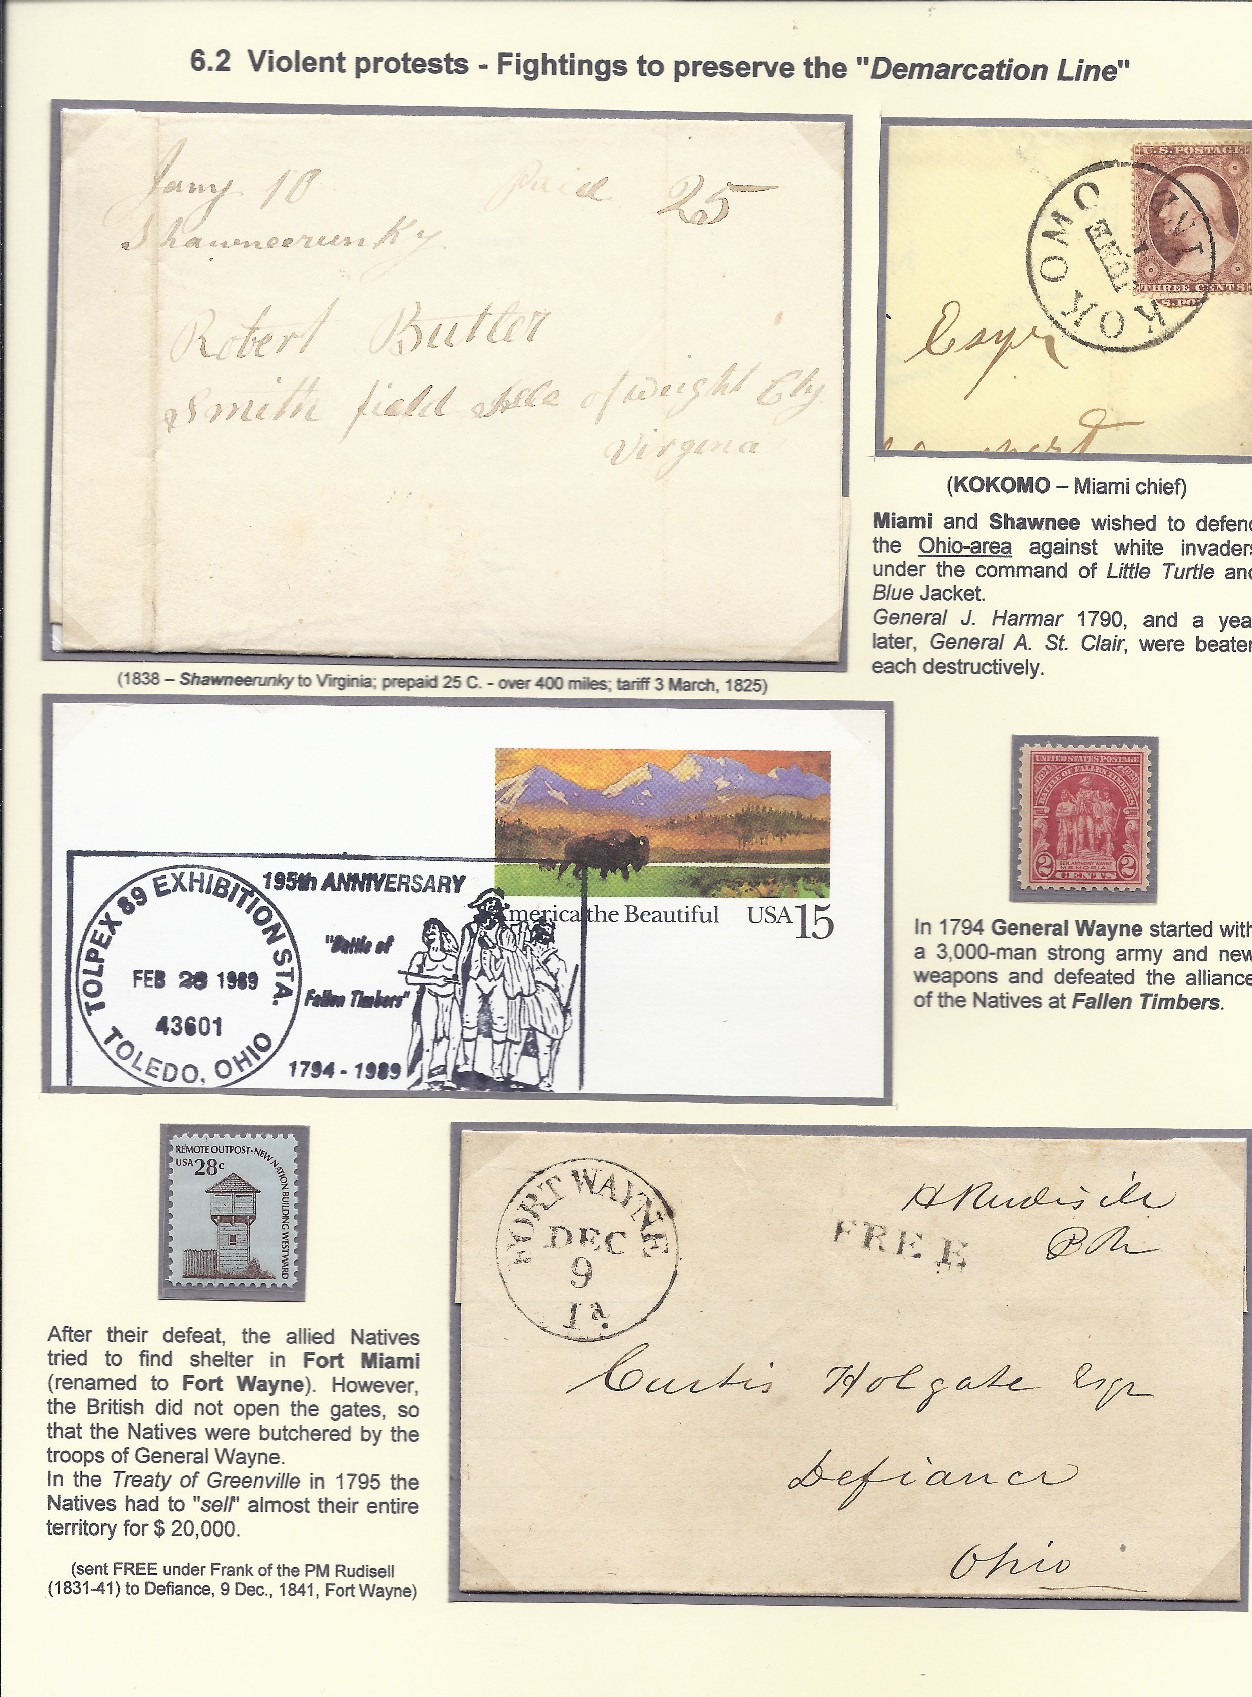 6.2 Violent protests - Fightings to preserve the "Demarcation Line"
Jany 10 Paid 25
Shawneerun Ky
Robert Butler
Smith field Isle of Weight Cty
Virginia
(1838 – Shawneerunky to Virginia; prepaid 25 C. - over 400 miles; tariff 3 March, 1825)
U.S. POSTAGE
THREE CENTS
KOKOMO IND
Esqr
(KOKOMO – Miami chief)
Miami and Shawnee wished to defend
the Ohio-area against white invaders
under the command of Little Turtle and
Blue Jacket.
General J. Harmar 1790, and a year
later, General A. St. Clair, were beaten
each destructively.
America the Beautiful USA 15
TOLPEX 89 EXHIBITION STA.
FEB 28 1989
43601
TOLEDO, OHIO
195th ANNIVERSARY
"Battle of
Fallen Timbers"
1794 - 1989
UNITED STATES POSTAGE
BATTLE OF FALLEN TIMBERS
GEN. ANTHONY WAYNE
MEMORIAL
2 CENTS 2
In 1794 General Wayne started with
a 3,000-man strong army and new
weapons and defeated the alliance
of the Natives at Fallen Timbers.
REMOTE OUTPOST·NEW NATION BUILDING WESTWARD
USA 28c
After their defeat, the allied Natives
tried to find shelter in Fort Miami
(renamed to Fort Wayne). However,
the British did not open the gates, so
that the Natives were butchered by the
troops of General Wayne.
In the Treaty of Greenville in 1795 the
Natives had to "sell" almost their entire
territory for $ 20,000.
(sent FREE under Frank of the PM Rudisell
(1831-41) to Defiance, 9 Dec., 1841, Fort Wayne)
FORT WAYNE
DEC
9
Ia.
FREE
H Rudisill
PM
Curtis Holgate Esqr
Defiance
Ohio